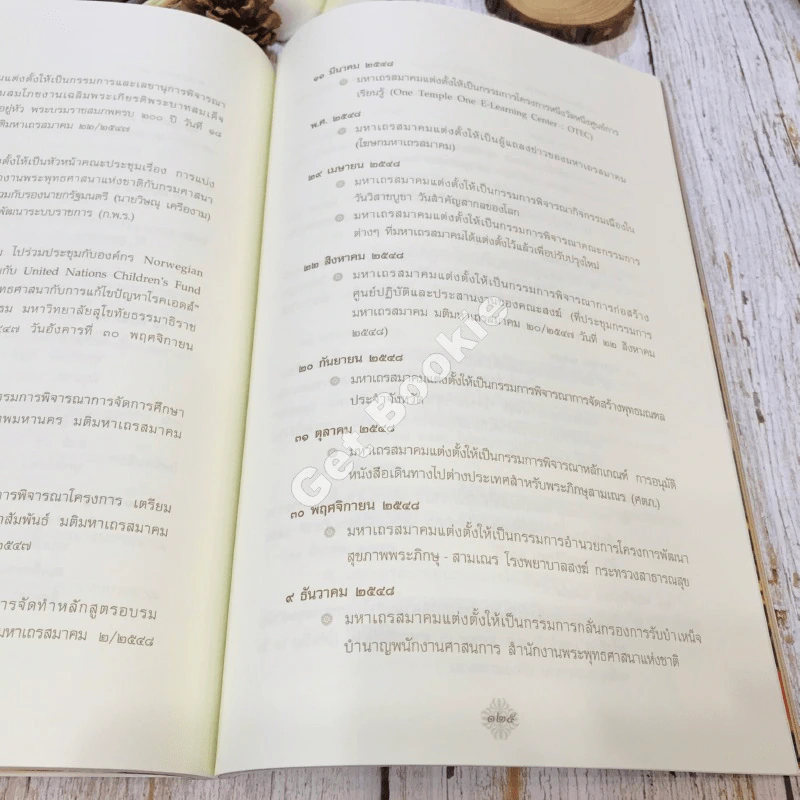 แต่งตั้งให้เป็นกรรมการและเลขานุการพิจารณา
มสมโภชงานเฉลิมพระเกียรติพระบาทสมเด็จ
อยู่หัว พระบรมราชสมภพครบ ๒๐๐ ปี วันที่ ๑๘
มติมหาเถรสมาคม ๒๒/๒๕๔๗
ตั้งให้เป็นหัวหน้าคณะประชุมเรื่อง การแบ่ง
งานพระพุทธศาสนาแห่งชาติกับกรมศาสนา
ร่วมกับรองนายกรัฐมนตรี (นายวิษณุ เครืองาม)
พัฒนาระบบราชการ (ก.พ.ร.)
ม ไปร่วมประชุมกับองค์กร Norwegian
มกับ United Nations Children's Fund
ทธศาสนากับการแก้ไขปัญหาโรคเอดส์"
รม มหาวิทยาลัยสุโขทัยธรรมาธิราช
๔๗ วันอังคารที่ ๓๐ พฤศจิกายน
รรมการพิจารณาการจัดการศึกษา
ทพมหานคร มติมหาเถรสมาคม
การพิจารณาโครงการ เตรียม
าสัมพันธ์ มติมหาเถรสมาคม
๒๕๔๗
การจัดทำหลักสูตรอบรม
มหาเถรสมาคม ๒/๒๕๔๘
๑๑ มีนาคม ๒๕๔๘
มหาเถรสมาคมแต่งตั้งให้เป็นกรรมการโครงการหนึ่งวัดหนึ่งศูนย์การ
เรียนรู้ (One Temple One E-Learning Center : OTEC)
พ.ศ. ๒๕๔๘
มหาเถรสมาคมแต่งตั้งให้เป็นผู้แถลงข่าวของมหาเถรสมาคม
(โฆษกมหาเถรสมาคม)
๒๙ เมษายน ๒๕๔๘
มหาเถรสมาคมแต่งตั้งให้เป็นกรรมการพิจารณากิจกรรมเนื่องใน
วันวิสาขบูชา วันสำคัญสากลของโลก
มหาเถรสมาคมแต่งตั้งให้เป็นกรรมการพิจารณาคณะกรรมการ
ต่างๆ ที่มหาเถรสมาคมได้แต่งตั้งไว้แล้วเพื่อปรับปรุงใหม่
๒๒ สิงหาคม ๒๕๔๘
มหาเถรสมาคมแต่งตั้งให้เป็นกรรมการพิจารณาการก่อสร้าง
ศูนย์ปฏิบัติและประสานงานของคณะสงฆ์ (ที่ประชุมกรรมการ
มหาเถรสมาคม มติมหาเถรสมาคม ๒๐/๒๕๔๗ วันที่ ๒๒ สิงหาคม
๒๕๔๘)
๒๐ กันยายน ๒๕๔๘
มหาเถรสมาคมแต่งตั้งให้เป็นกรรมการพิจารณาการจัดสร้างพุทธมณฑล
ประจำจังหวัด
๓๑ ตุลาคม ๒๕๔๘
มหาเถรสมาคมแต่งตั้งให้เป็นกรรมการพิจารณาหลักเกณฑ์ การอนุมัติ
หนังสือเดินทางไปต่างประเทศสำหรับพระภิกษุสามเณร (ศตภ.)
๓๐ พฤศจิกายน ๒๕๔๘
มหาเถรสมาคมแต่งตั้งให้เป็นกรรมการอำนวยการโครงการพัฒนา
สุขภาพพระภิกษุ - สามเณร โรงพยาบาลสงฆ์ กระทรวงสาธารณสุข
๙ ธันวาคม ๒๕๔๘
มหาเถรสมาคมแต่งตั้งให้เป็นกรรมการกลั่นกรองการรับบำเหน็จ
บำนาญพนักงานศาสนการ สำนักงานพระพุทธศาสนาแห่งชาติ
๑๒๕
Get Bookie